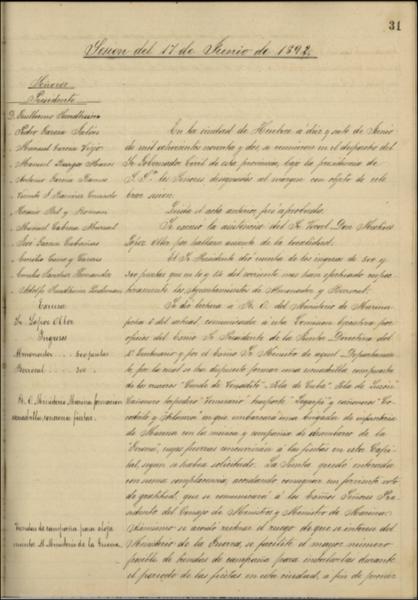 31
Sesion del 17 de Junio de 1892.
Señores
Presidente
D. Guillermo Sundheim
Pedro Garcia
Manuel Garcia Viejo
Manuel
Antonio Garcia Ramos
Vicente
Manuel
Garcia Cabañas
Aurelio
Emilio Sanchez Hernandez
Adolfo Sundheim Lindeman
Excusa
Sr. Lopez
Ingresos
Almonaster 500 pesetas
Berrocal 50
R. O. Ministerio Marina formacion
escuadrilla, concurra fiestas.
Tiendas de campaña para aloja
miento. Al Ministerio de la Guerra.
En la ciudad de Huelva a diez y siete de Junio
de mil ochocientos noventa y dos, se reunieron en el despacho del
Sr. Gobernador Civil de esta provincia, bajo la presidencia de
S. Sª los Señores designados al margen con objeto de cele
brar sesion.
Leida el acta anterior, fué aprobada.
Se excusó la asistencia del Sr. Vocal Don
Lopez por hallarse ausente de la localidad.
El Sr. Presidente dió cuenta de los ingresos de 500 y
50 pesetas que en 10 y 14 del corriente mes han efectuado respec
tivamente los Ayuntamientos de Almonaster y Berrocal.
Se dió lectura a R. O. del Ministerio de Marina
fecha 6 del actual, comunicada a esta Comision Ejecutiva por
oficios del Exmo Sr. Presidente de la Junta Directiva del
4º Centenario y por el Exmo Sr. Ministro de aquel Departamen
to por la cual se ha dispuesto formar una escuadrilla compuesta
de los cruceros "Conde de Venadito" "Isla de Cuba" "Isla de Luzon"
Cañonero torpedero "Temerario" trasporte "Legazpi" y cañoneros "Co
codrilo y Arlanza" en que embarcará una brigada de infanteria
de Marina con la música y compañia de desembarco de la
Escuadra, cuyas fuerzas concurrirán a las fiestas en esta Capi
tal, segun se habia solicitado. La Junta quedó enterada
con suma complacencia, acordando consignar un ferviente voto
de gratitud, que se comunicará a los Exmos Señores Pre
sidente del Consejo de Ministros y Ministro de Marina.
Asimismo se acordó reiterar el ruego de que se interese del
Ministerio de la Guerra, se facilite el mayor número
posible de tiendas de campaña para instalarlas durante
el periodo de las fiestas en esta ciudad, a fin de poner